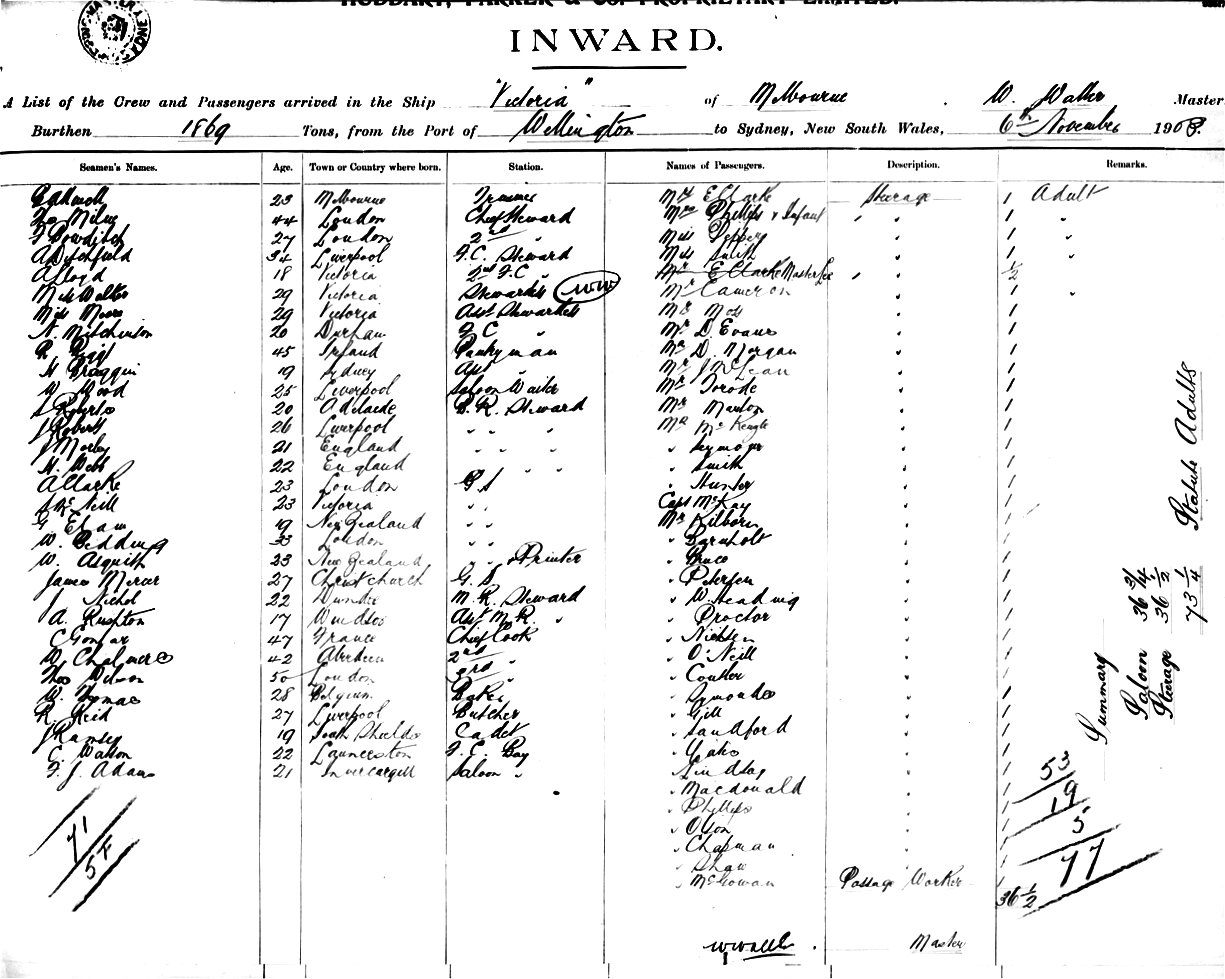 HUDDART, PARKER & CO. PROPRIETARY LIMITED.
INWARD.
A List of the Crew and Passengers arrived in the Ship "Victoria" of Melbourne . W. Waller Master
Burthen 1869 Tons, from the Port of Wellington to Sydney, New South Wales, 6th November 1908.
Seamen's Names. Age. Town or Country where born. Station. Names of Passengers. Description. Remarks.
23 Melbourne Trimmer Mr E Clarke Steerage 1 Adult
Milne 44 London Chief Steward Mrs Phillips & Infant " 1 "
F Bowditch 27 London 2nd " Miss Pepper " 1 "
A Ditchfield 34 Liverpool F.C. Steward Miss Smith " 1 "
A Lloyd 18 Victoria 2nd F.C " Mr E Clarke Master Lee " 1/2
Miss Walter 29 Victoria Stewardess WW Mr Cameron " 1 "
Miss Moore 29 Victoria Asst Stewardess Mr Moss " 1
N. Mitchinson 20 Durham F C " Mr D. Evans " 1
45 Ireland Pantryman Mr D. Morgan " 1
H Draggin 19 Sydney Asst " Mr J McLean " 1
W Wood 25 Liverpool Saloon Waiter Mr Torode " 1
S Roberts 20 Adelaide B.R. Steward Mr Manton " 1
J Roberts 26 Liverpool " " " Mr Mc Keagle " 1
J Morley 21 England " " " " Seymour " 1
H. Webb 22 England " " " " Smith " 1
A Clarke 23 London G S " Hunter " 1
McNeill 23 Victoria " " Capt McKay " 1
G Elam 19 New Zealand " " Mr Kilborn " 1
W. Bedding 33 London " " " Barnholt " 1
W. Asquith 23 New Zealand " " & Printer " Bruce " 1
James Mercer 27 Christchurch G. S " Petersen " 1
J Nichol 22 Dundee M. R. Steward " W. Steadnig " 1
A. Rushton 17 Windsor Asst M.R. " " Proctor " 1
C Gontar 47 France Chief Cook " Nielsen " 1
W. Chalmers 42 Aberdeen 2nd " " O'Neill " 1
Thos Wilson 50 London 3rd " " Coulter " 1
W. Thomas 28 Belgium Baker " Symonds " 1
R. Reid 27 Liverpool Butcher " Gill " 1
J Ramsey 19 South Shields Cadet " Sandford " 1
E. Watson 22 Launceston F. C. Boy " 1
F. J. Adams 21 Invercargill Saloon " " Lindsay " 1
" Macdonald " 1
" Phillips " 1
" Olson " 1
" Chapman " 1
" Shaw " 1
" McGowan Passage Worker 1
36 1/2
71
54
53
19
5
77
Summary
Saloon 36 3/4
Steerage 36 1/2
73 1/4 Statute Adults
W Waller . Master